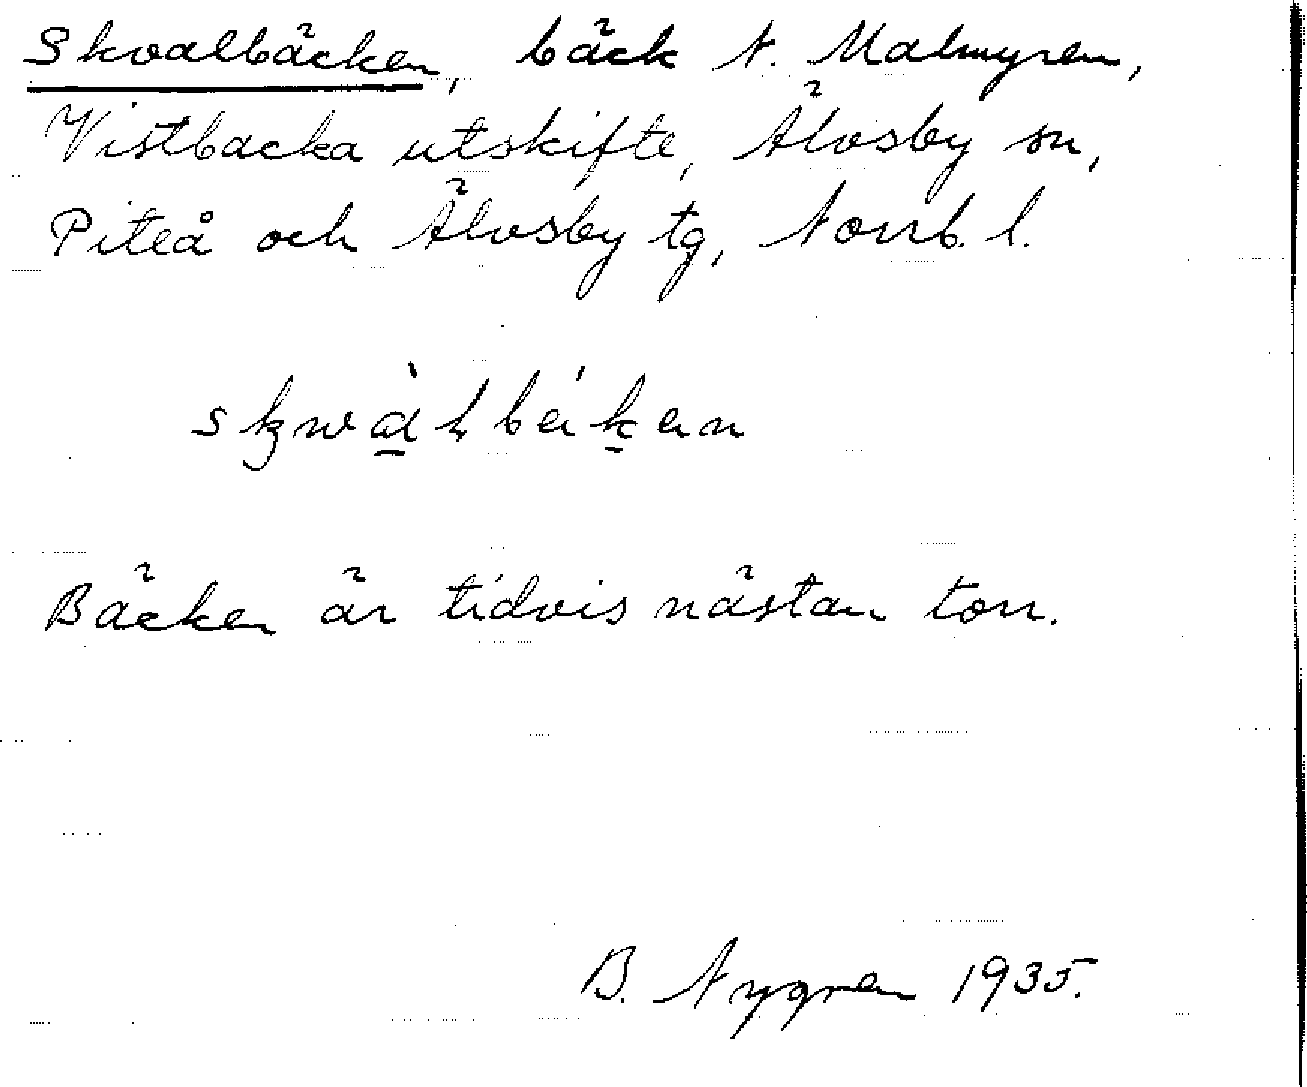 Skvalbäcken, bäck N. Malmyren,
Vistbäcka utskifte, Älvsby sn,
Piteå och Älvsby tg, Norrb. l.
Bäcken är tidvis nästan torr.
B. Nygren 1935.